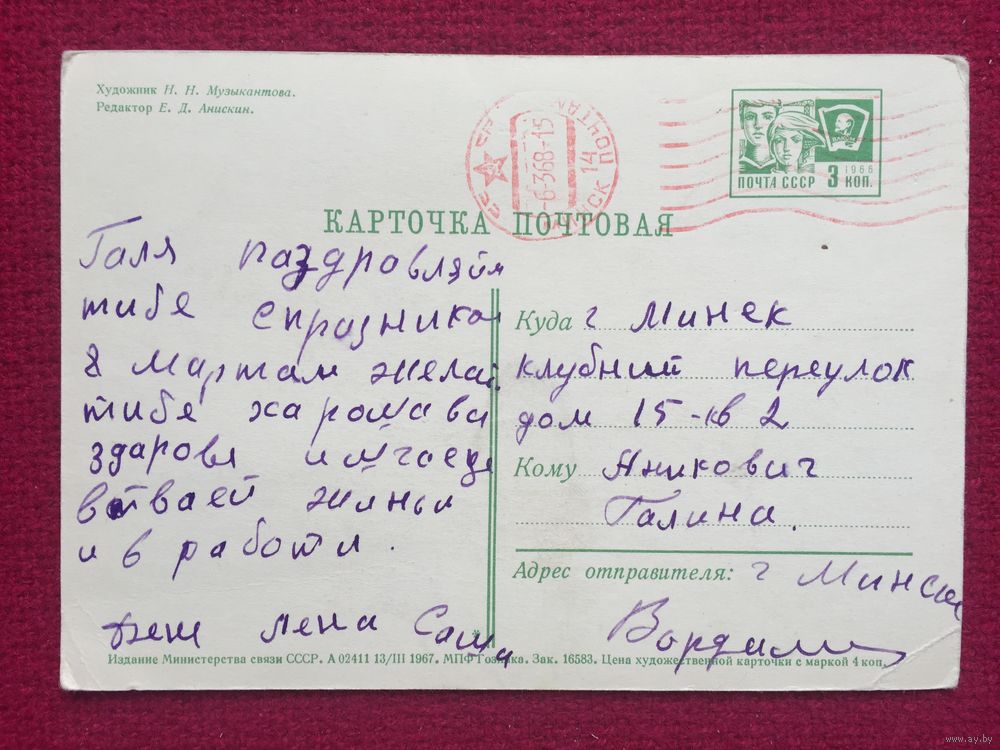 Художник Н. Н. Музыкантова.
Редактор Е. Д. Анискин.
-6-368-15
14
ПОЧТА СССР 3 КОП.
1966
ВЛКСМ
КАРТОЧКА ПОЧТОВАЯ
Галя паздравляйм
тибе спразником
8 Мартам желай
тибе харошава
здаровя и
жизни
и в работи.
лена Саша
Куда г Минск
клубний переулок
дом 15-кв 2
Кому Яникович
Галина.
Адрес отправителя: г Минск
Издание Министерства связи СССР. А 02411 13/III 1967. МПФ Гознака. Зак. 16583. Цена художественной карточки с маркой 4 коп.
www.ay.by